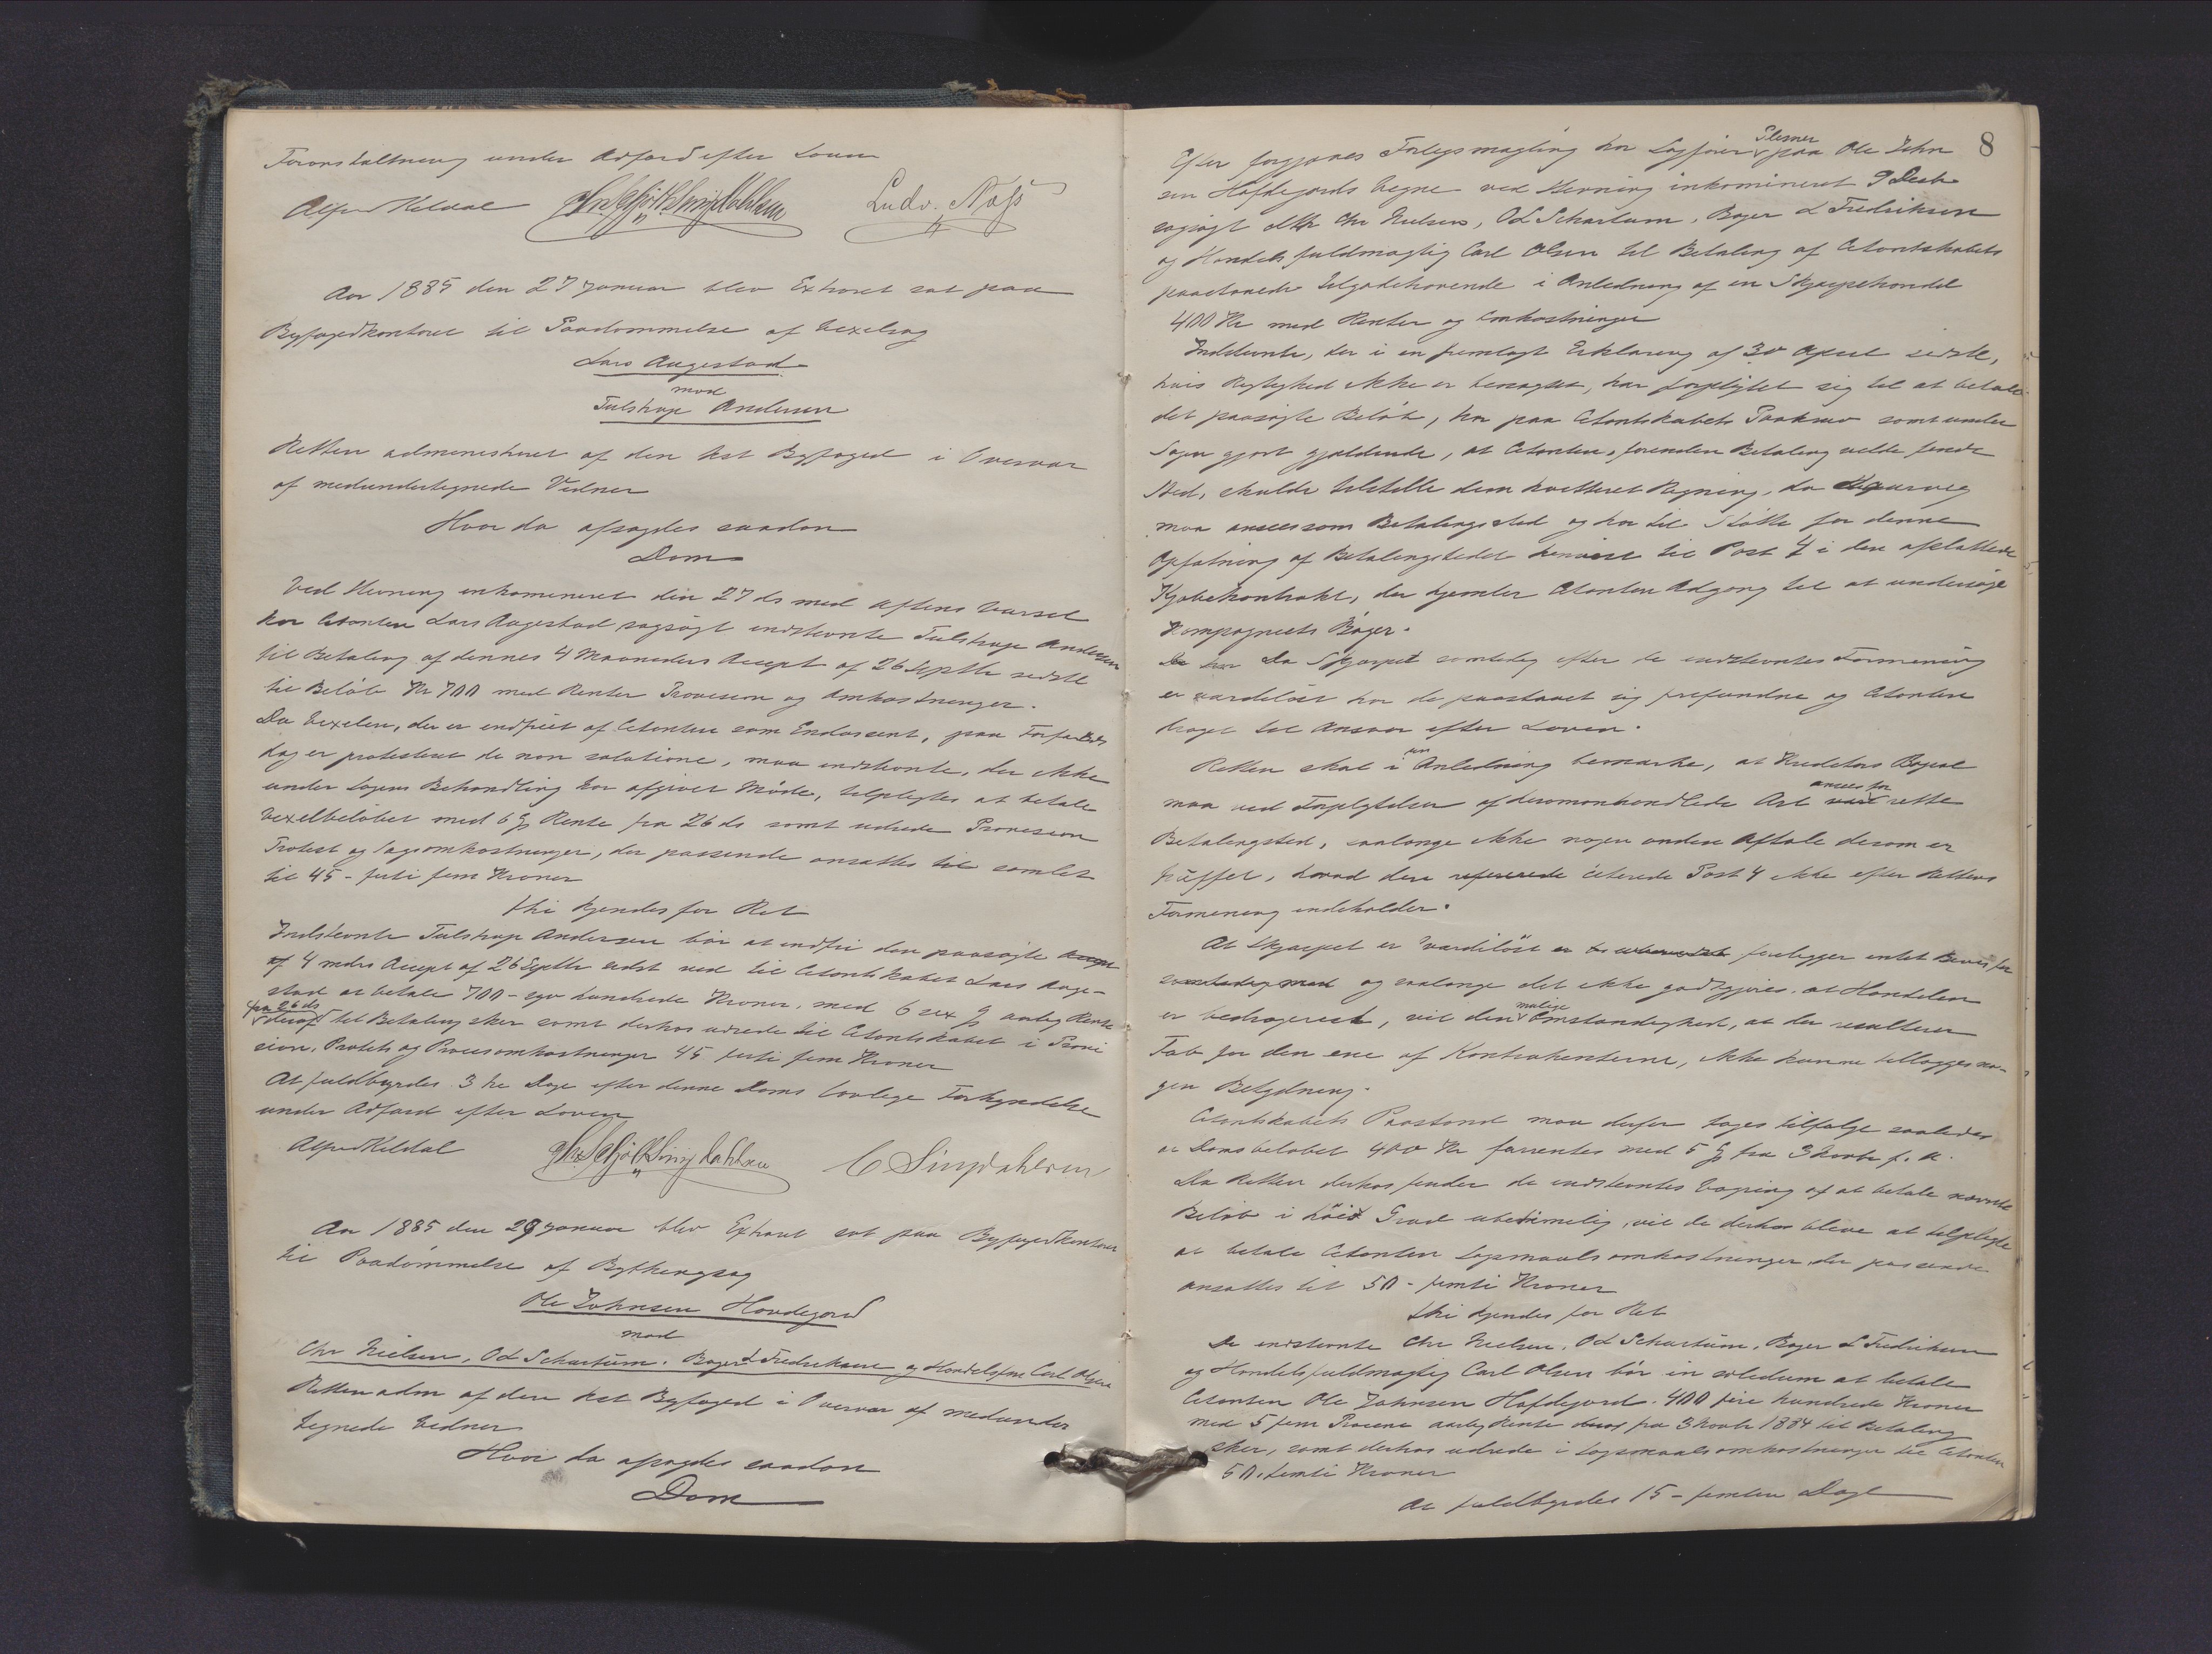 Foranstaltning under Adfærd efter Loven
Alfred Keldal
Ludv. Næss
Aar 1885 den 27 Januar blev Extraret sat paa
Byfogedkontoret til Paadømmelse af Vexelsag
Lars Augestad
mod
Tulstrup Andersen
Retten administreret af den kst Byfoged i Overvær
af medundertegnede Vidner
Hvor da afsagdes saadan
Dom
Ved Stevning inkamineret den 27 ds med Aftens Varsel
har Citanten Lars Augestad sagsøgt indstevnte Tulstrup Andersen
til Betaling af dennes 4 Maaneders Accept af 26 Septbr sidstl
til Beløb Kr 700 med Renter Provision og Omkostninger.
Da Vexelen, der er indfriet af Citanten som Endossent, paa Forfalds
dag er protesteret de non solutione, maa indstevnte, der ikke
under Sagens Behandling har afgivet Møde, tilpligtes at betale
Vexelbeløbet med 6 % Rente fra 26 ds samt udrede Provision
Protest og Sagsomkostninger, der passende ansættes til samlet
til 45 - forti fem Kroner
thi kjendes for Ret
Indstevnte Tulstrup Andersen bør at indfri den paasøgte Accept
af 4 mdrs Accept af 26 Septbr sidst ved til Citantskabet Lars Auge-
stad at betale 700 - syv hundrede Kroner, med 6 sex % aarlig Rente
fra 26 ds
deraf til Betaling sker samt derhos udrede til Citantskabet i Provi
sion, Protest og Procesomkostninger 45 forti fem Kroner
At fuldbyrdes 3 tre Dage efter denne Doms lovlige Forkyndelse
under Adfærd efter Loven
Alfred Keldal
C Lingdahlsen
Aar 1885 den 29 Januar blev Extraret sat paa Byfogedkontoret
til Paadømmelse af Bythingssag
Ole Johnsen Hovdegard
mod
Chr Nielsen, O L Schartum, Bager L Fredriksen og Handelsfm Carl Olsen
Retten adm af den kst Byfoged i Overvær af medunder
tegnede Vidner
Hvor da afsagdes saadan
Dom
8
Efter forgjæves Forligsmægling har Sagfører Plesner paa Ole John
sen Hofdegards Vegne ved Stevning inkamineret 9 Decbr
sagsøgt Chr Nielsen, O L Schartum, Bager L Fredriksen
og Handelsfuldmægtig Carl Olsen til Betaling af Citantskabets
paastaaede Tilgodehavende i Anledning af en Skjærpehandel
400 Kr med Renter og Omkostninger
Indstevnte, der i en fremlagt Erklæring af 30 April sidstl,
hvis Rigtighed ikke er benægtet, har forpligtet sig til at betale
det paasøgte Beløb, har paa Citantskabets Paakrav samt under
Sagen gjort gjældende, at Citanten, forinden Betaling vilde finde
Sted, skulde tilstille dem kvitteret Regning, da
maa ansees som Betalingssted og har til Støtte for denne
Opfatning af Betalingsstedet henvist til Post 4 i den afsluttede
Kjøbekontrakt, der hjemler Citanten Adgang til at undersøge
Kompagniets Bøger.
Da Skjærpet samtidig efter de indstevntes Formening
er værdiløst har de paastaaet sig frifundne og Citanten
draget til Ansvar efter Loven.
Retten skal i den Anledning bemærke, at Kreditors Bopæl
maa ved Forpligtelser af deromhandlede Art ansees for rette
Betalingssted, saalænge ikke nogen anden Aftale derom er
truffet, hvad den refererede citerede Post 4 ikke efter Rettens
Formening indeholder.
At Skjærpet er værdiløst er foreligger intet Bevis for
og saalænge det ikke godtgjøres at Handelen
er bedragerisk, vil den mulige Omstændighed, at der resulterer
Tab for den ene af Kontrahenterne, ikke kunne tillægges no-
gen Betydning.
Citantskabets Paastand maa derfor tages tilfølge saaledes
at Domsbeløbet 400 Kr forrentes med 5 % fra 3 Novbr f. A.
Da Retten derhos finder de indstevntes Vægring af at betale nævnte
Beløb i høist Grad ubetimelig, vil de derhos blive at tilpligte
at betale Citanten Sagsmaalsomkostninger der passende
ansættes til 50 - femti Kroner
thi kjendes for Ret
De indstevnte Chr Nielsen, O L Schartum, Bager L Fredriksen
og Handelsfuldmægtig Carl Olsen bør in solidum at betale
Citanten Ole Johnsen Hofdegard 400 fire hundrede Kroner
med 5 fem Procent aarlig Rente deraf fra 3 Novbr 1884 til Betaling
sker, samt derhos udrede i Sagsmaalsomkostninger til Citanten
50, femti Kroner
At fuldbyrdes 15 - femten Dage